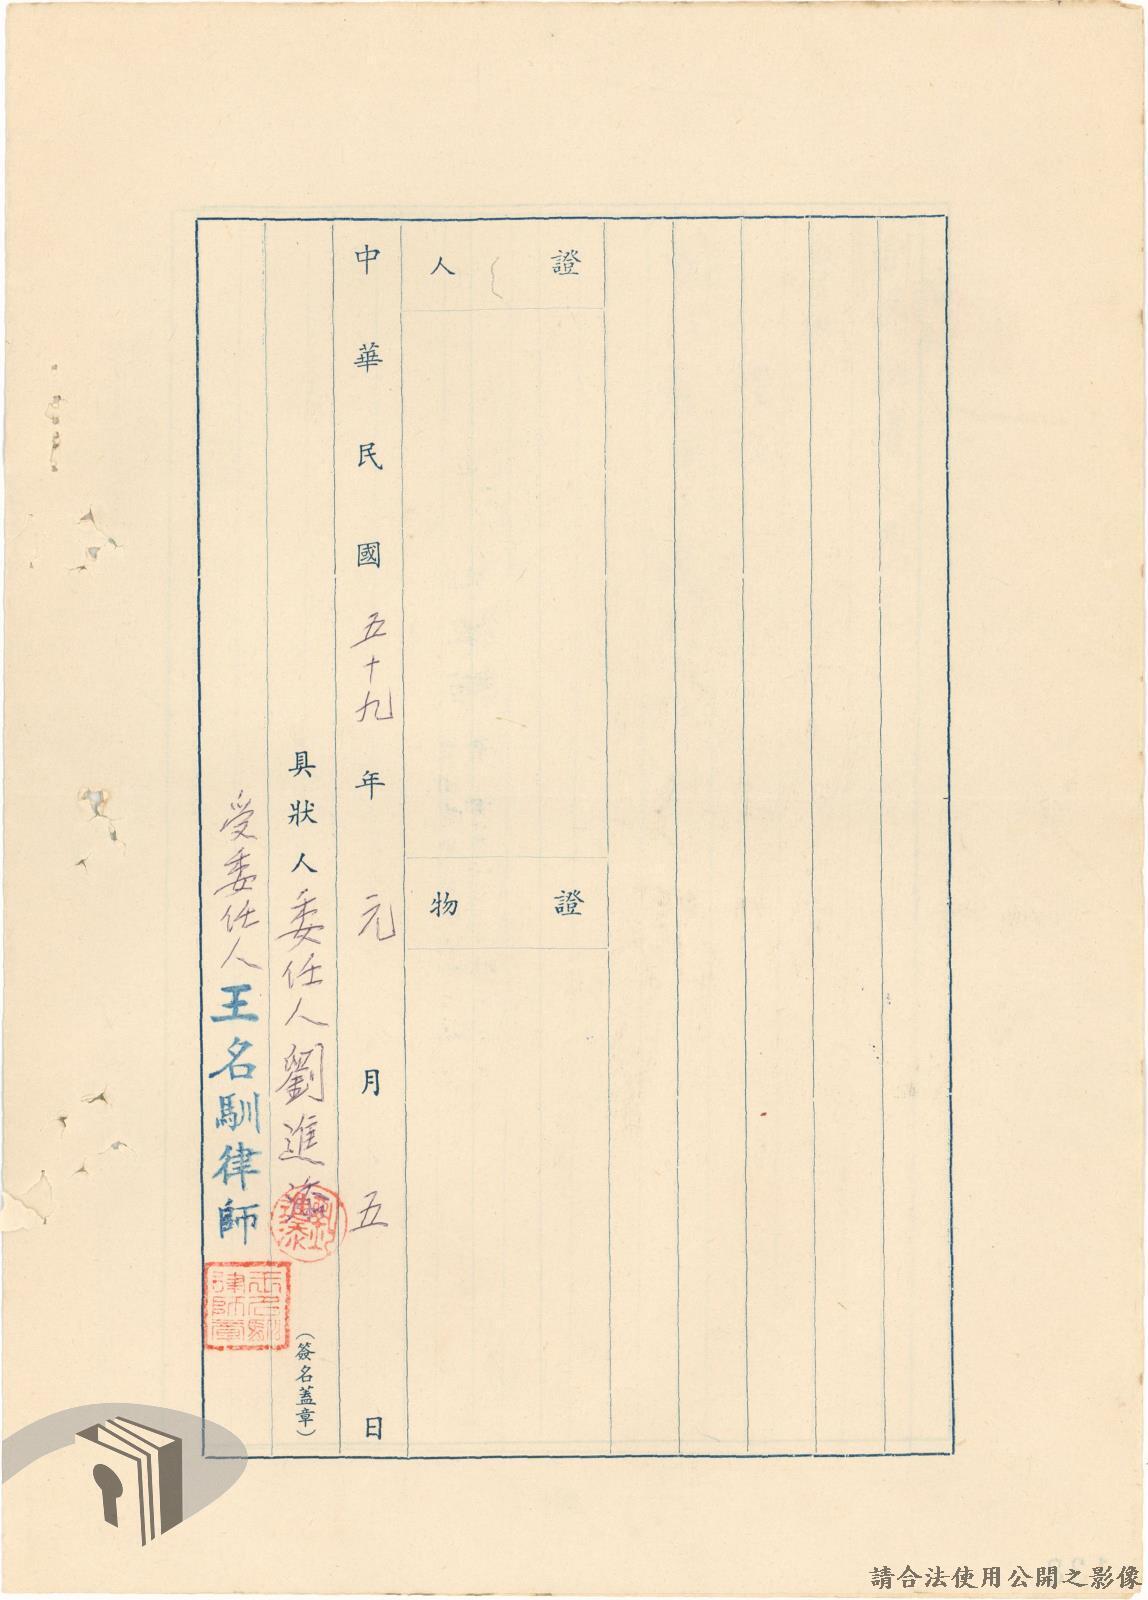 證人
證物
中華民國五十九年元月五日
具狀人委任人劉進添（簽名蓋章）
劉進添
受委任人王名馴律師
王名馴律師章
請合法使用公開之影像